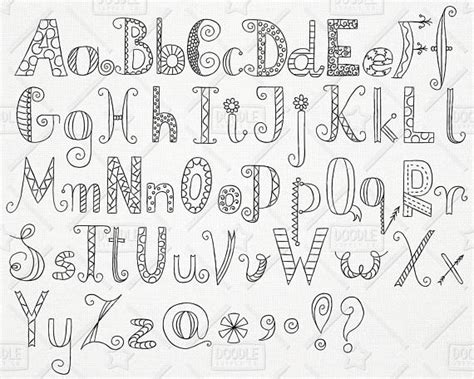 AaBbCcDdEeFf
GgHhIiJjKkLl
MmNnOoPpQqRr
SsTtUuVvWwXx
YyZz@*,;!?
DOODLE
DOODLE
DOODLE